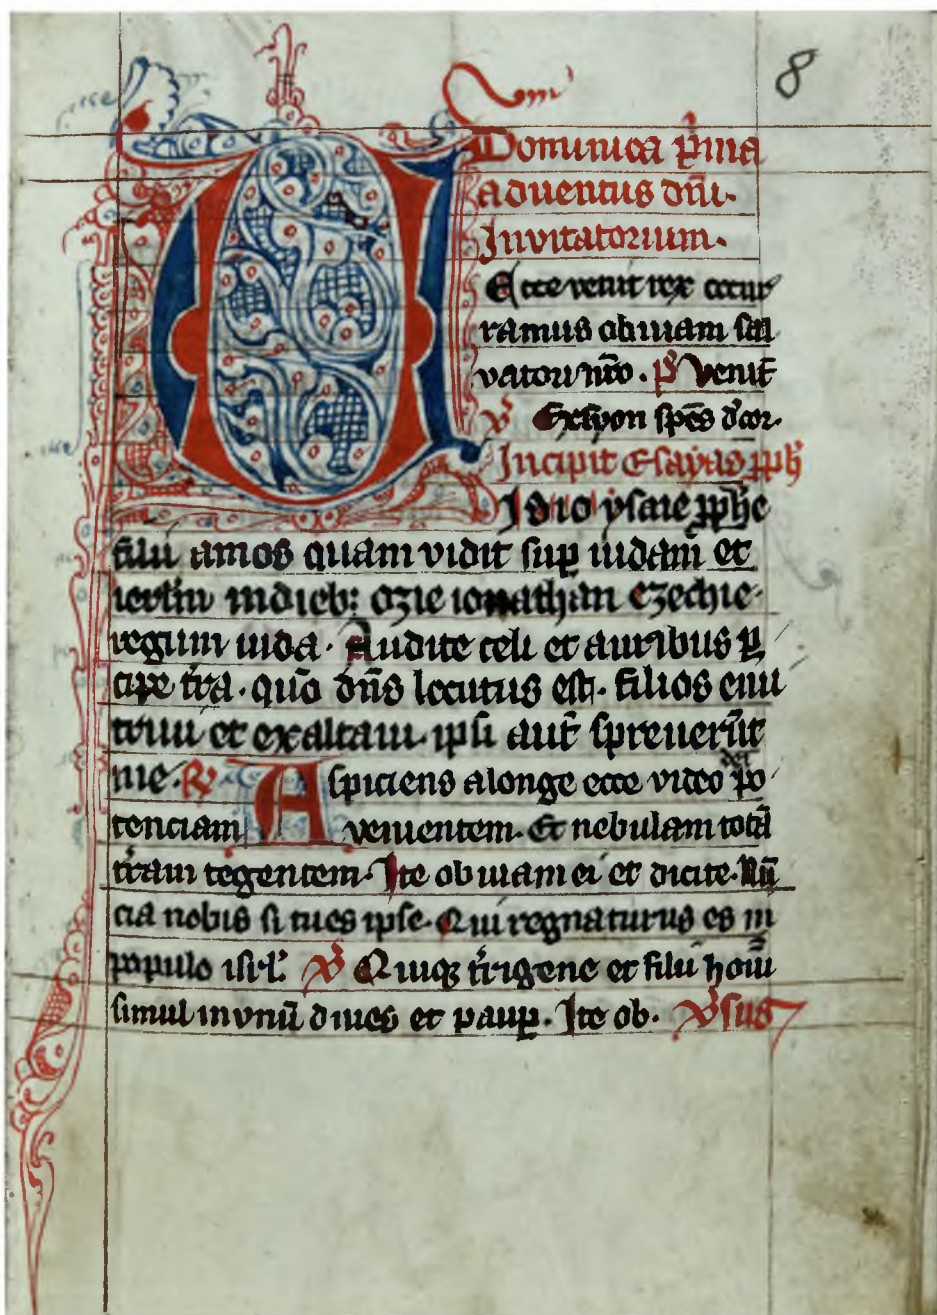 8
Dominica p̓ma
aduentus dn̄i.
Inuitatorium.
Ecce venit rex occur
ramus obuiam sal
vatori nr̄o. p̄s Venit̄
℣ Ex syon spēs d̓cor.
Incipit Esayas ꝓph̄
Uisio ysaie ꝓph̄e
filii amos quam vidit suꝑ iudam et
ierl̄m in dieb: ozie ionathan ezechie
regum iuda. Audite celi et auribus ꝑ
cipe t̄ra. quō dn̄s locutus est. filios enu
triui et exaltaui. ipsi aut̄ spreuerūt
me. ℟ Aspiciens alonge ecce video dei po
tenciam venientem. Et nebulam totā
t̄ram tegentem. Ite obuiam ei et dicite. Nū
cia nobis si tu es ipse. Qui regnaturus es in
populo isrl̓. ℣ Quiqꝫ t̓rigene et filii hoīm
simul in vnū diues et pauꝑ. Ite ob. ℣sus